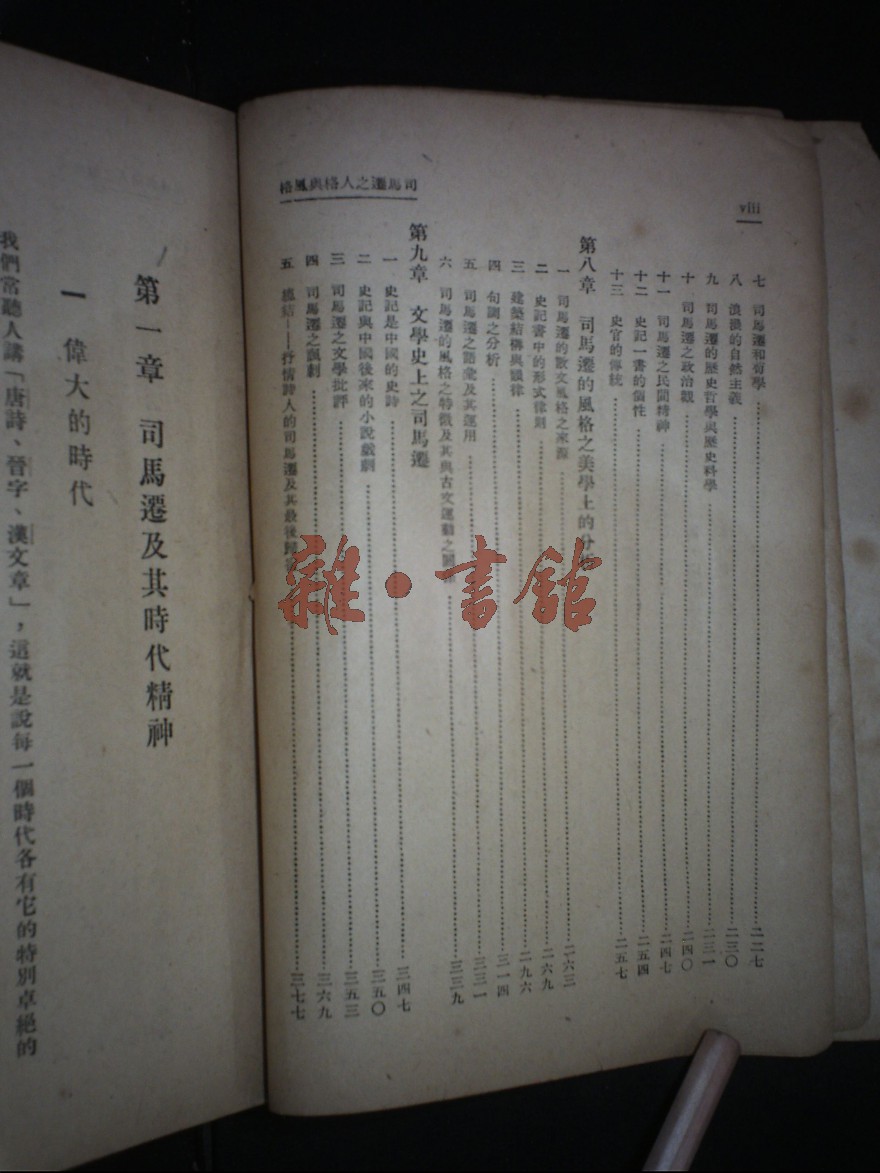 司馬遷之人格與風格
viii
七 司馬遷和荀學 二二七
八 浪漫的自然主義 二三〇
九 司馬遷的歷史哲學與歷史科學 二三一
十 司馬遷之政治觀 二四〇
十一 司馬遷之民間精神 二四七
十二 史記一書的個性 二五四
十三 史官的傳統 二五七
第八章 司馬遷的風格之美學上的分
一 司馬遷的散文風格之來源 二六三
二 史記書中的形式律則 二六九
三 建築結構與韻律 二九六
四 句調之分析 三一四
五 司馬遷之語彙及其運用
六 司馬遷的風格之特徵及其與古文運動之關係 三三九
第九章 文學史上之司馬遷
一 史記是中國的史詩 三四七
二 史記與中國後來的小說戲劇 三五〇
三 司馬遷之文學批評 三五三
四 司馬遷之諷刺 三六九
五 總結——抒情詩人的司馬遷及其最後歸 三七七
雜·書館
第一章 司馬遷及其時代精神
一 偉大的時代
我們常聽人講「唐詩、晉字、漢文章」，這就是說每一個時代各有它的特別卓絕的